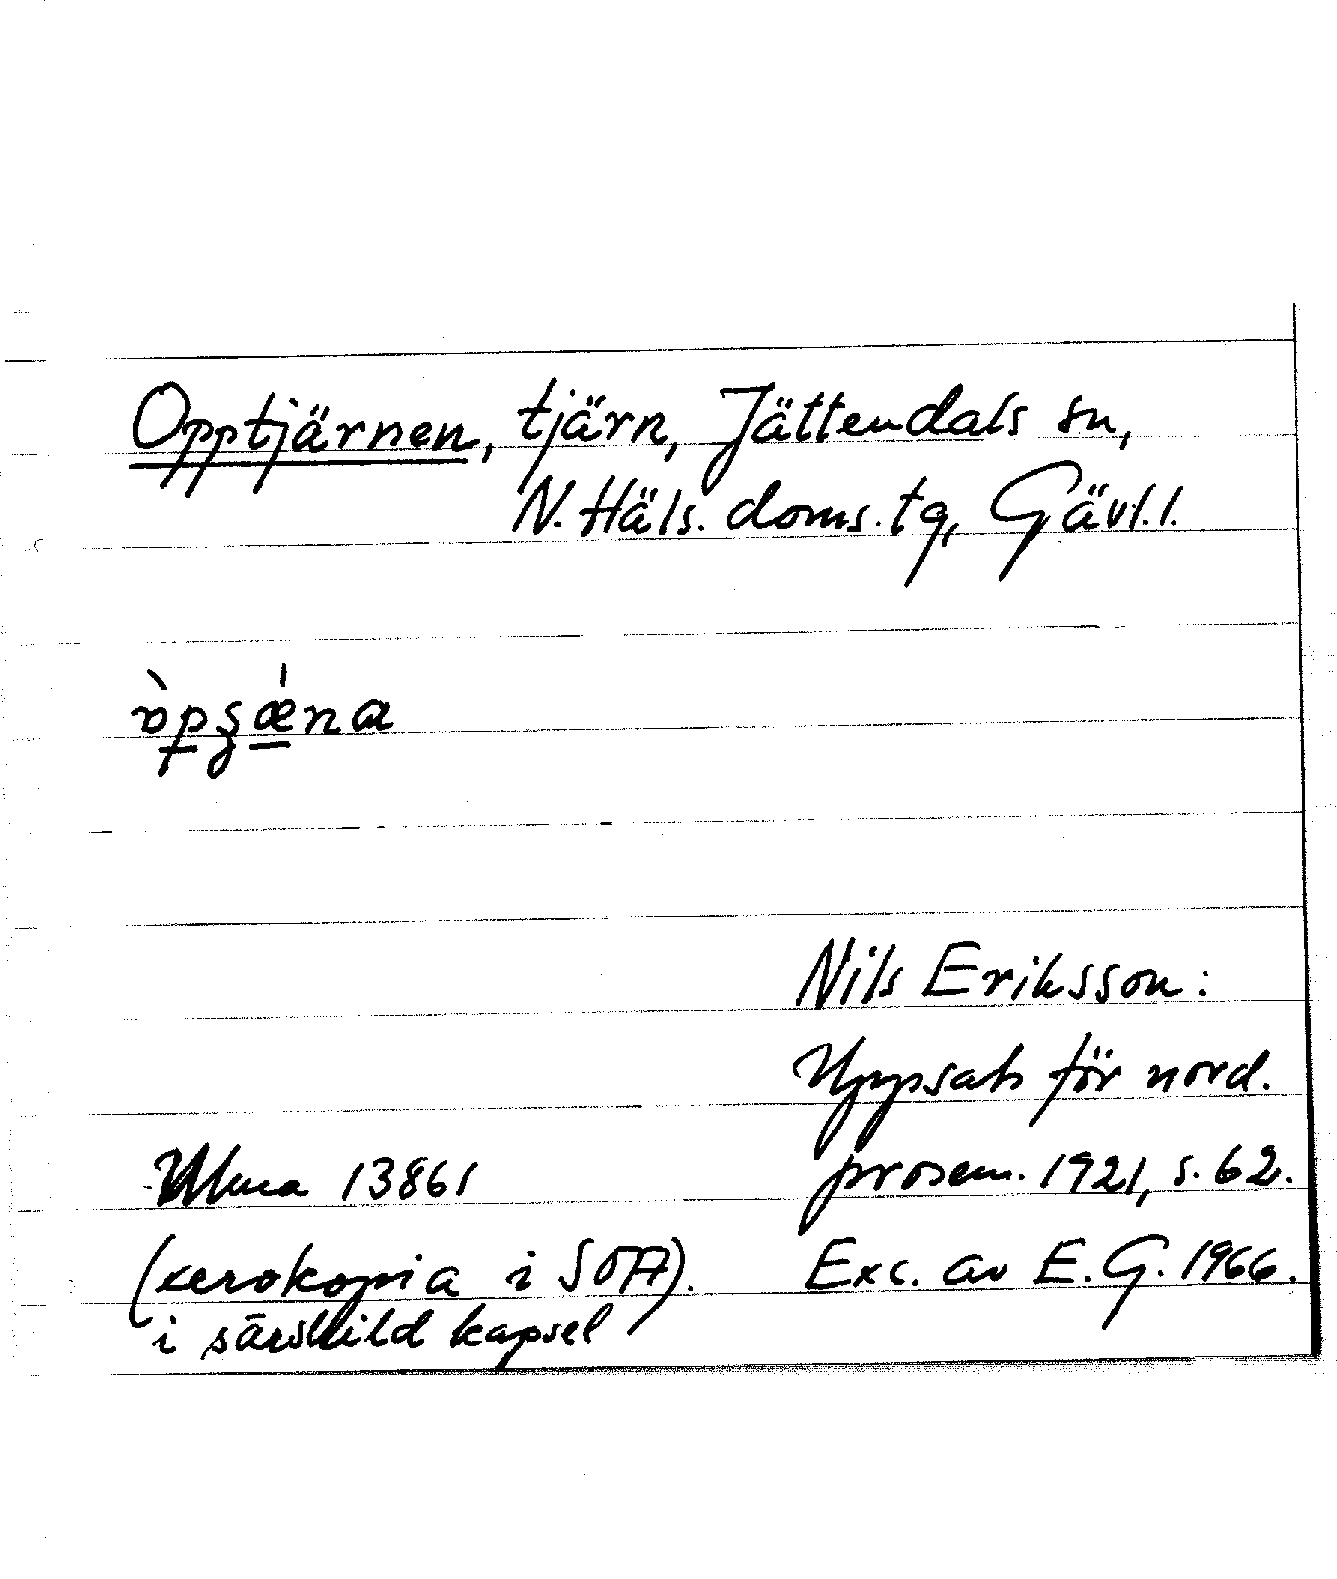 Opptjärnen, tjärn, Jättendals sn,
N. Häls. doms. tg, Gävl. l.
Nils Eriksson:
Uppsats för nord.
Ulma 13861 prosem. 1921, s. 62.
(xerokopia i SOA). Exc. av E. G. 1966.
i särskild kapsel